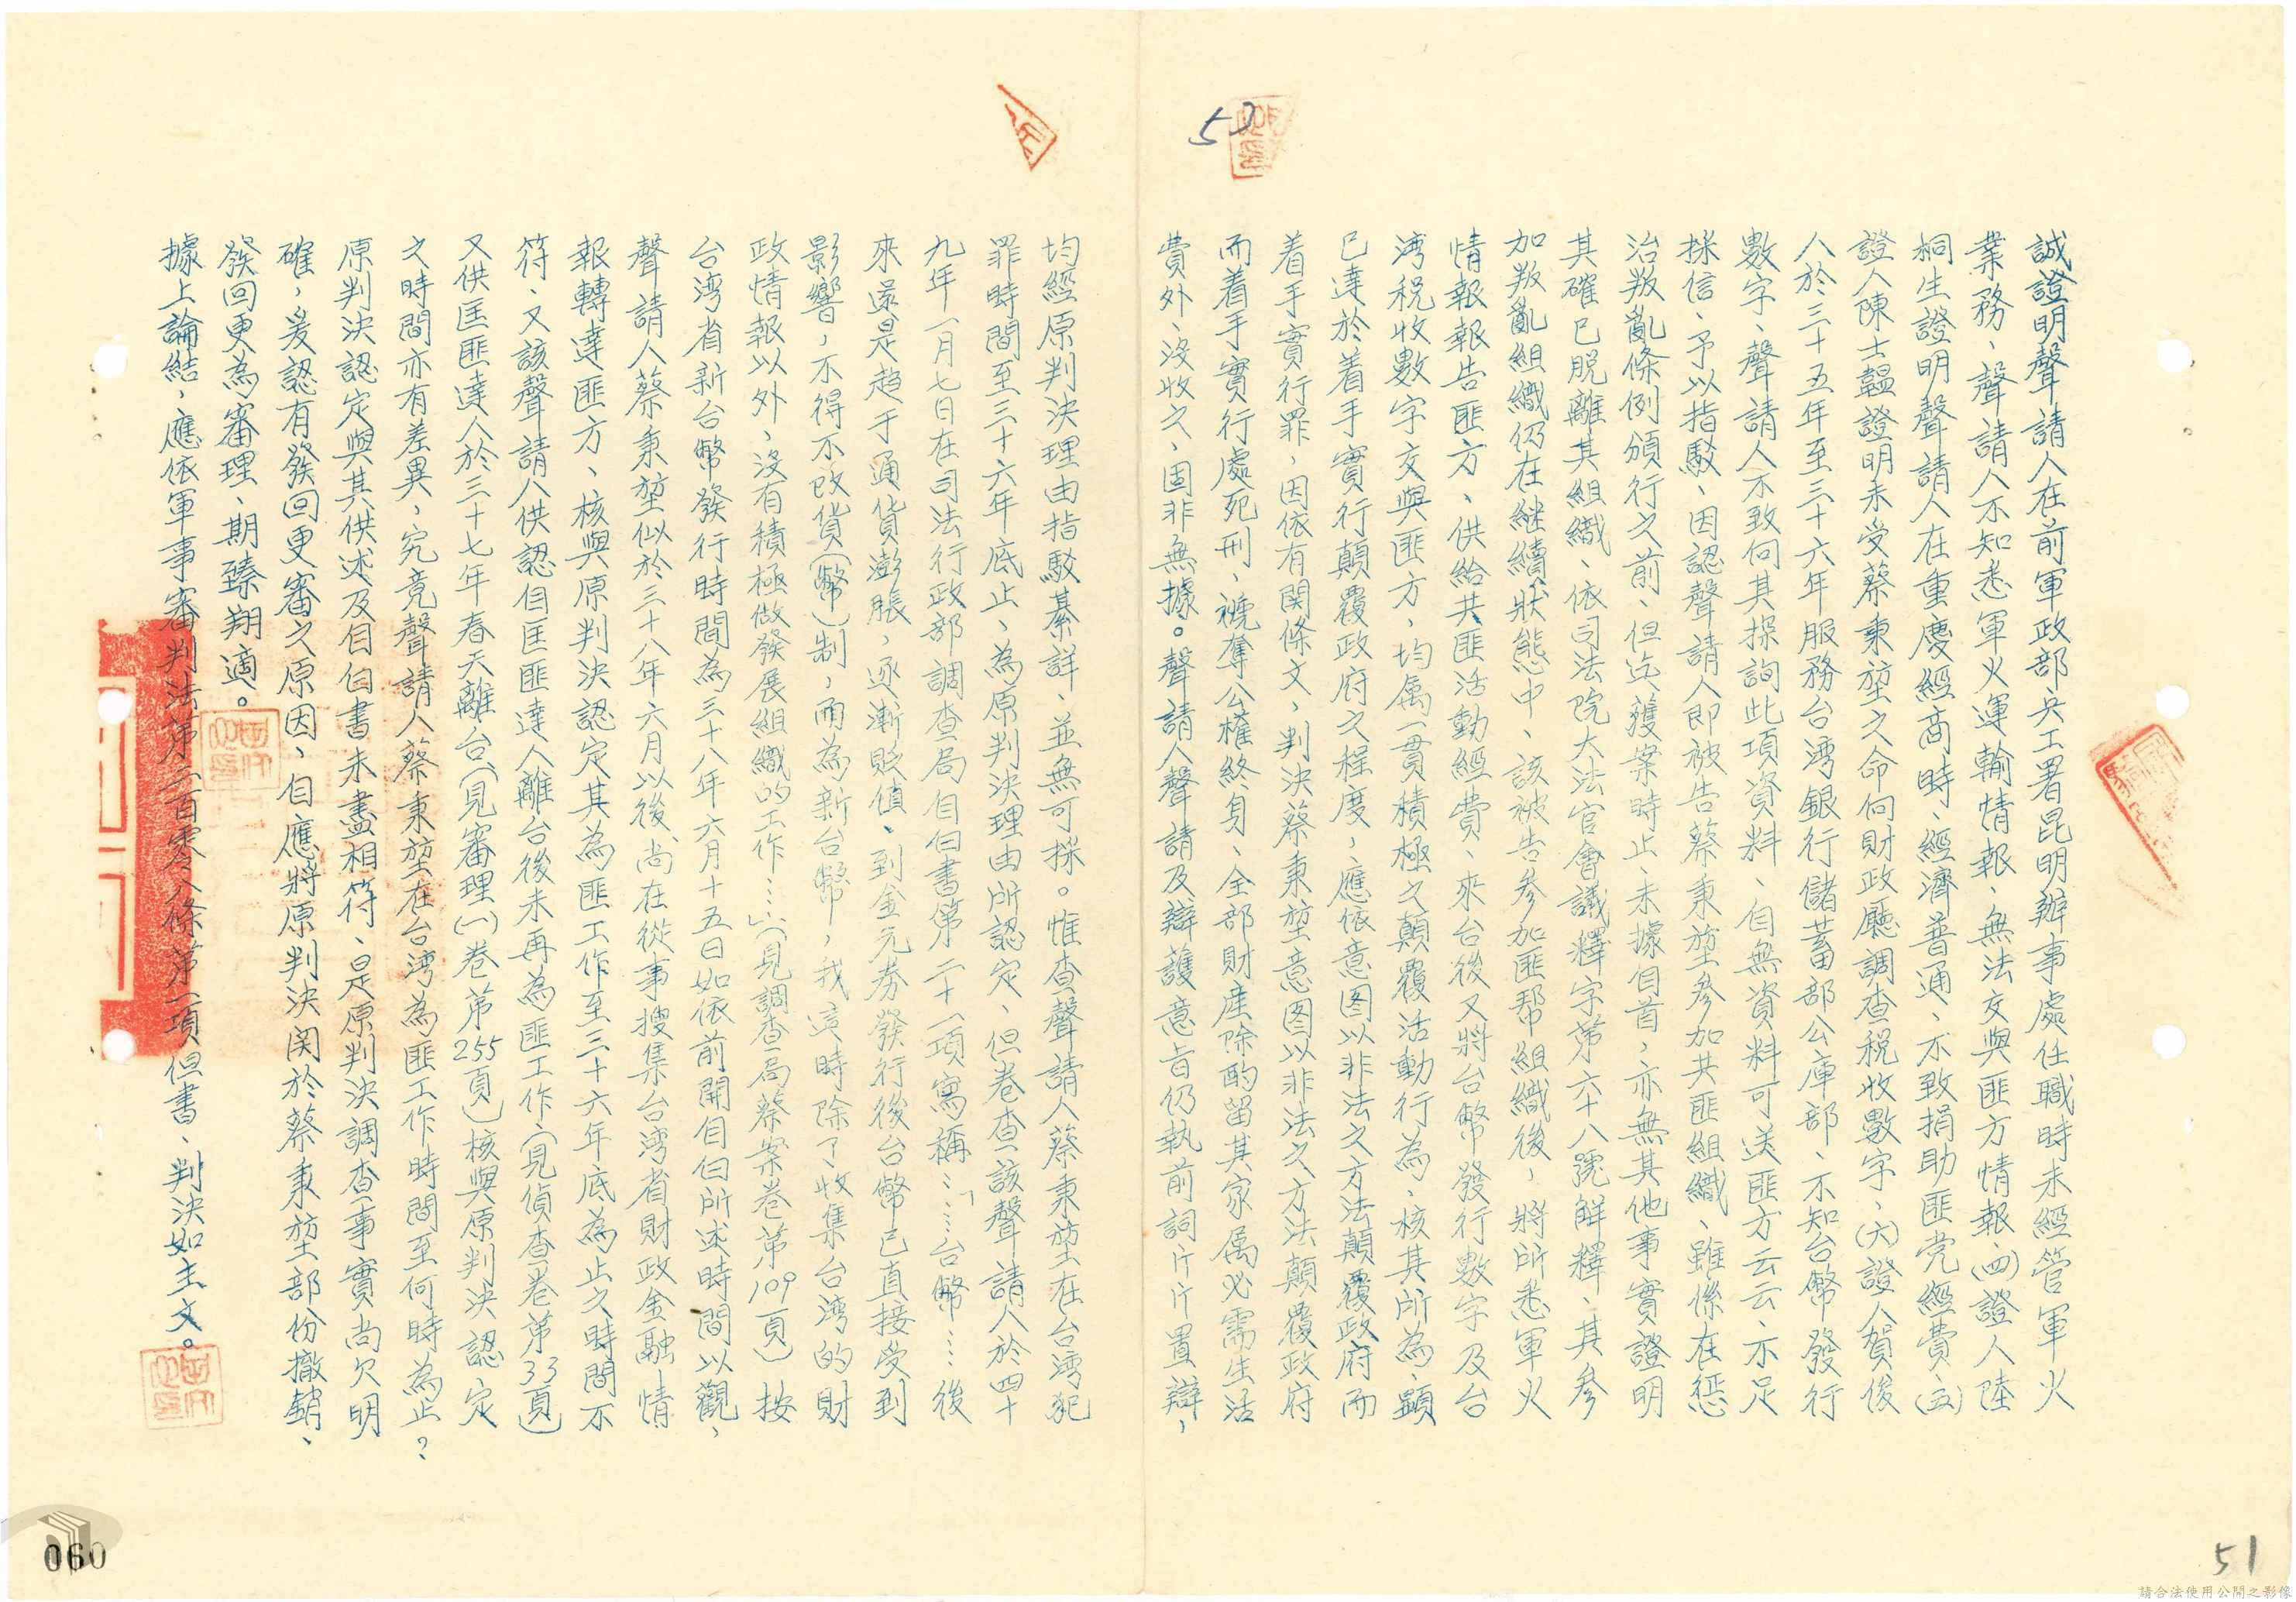 誠證明聲請人在前軍政部兵工署昆明辦事處任職時未經管軍火
業務、聲請人不知悉軍火運輸情報、無法交與匪方情報、(四)證人陸
桐生證明聲請人在重慶經商時、經濟普通、不致捐助匪党經費、(五)
證人陳士韞證明未受蔡秉堃之命向財政廳調查稅收數字、(六)證人賀俊
人於三十五年至三十六年服務台湾銀行儲蓄部公庫部、不知台幣發行
數字、聲請人不致向其探詢此項資料、自無資料可送匪方云云、不足
採信、予以指駁、因認聲請人即被告蔡秉堃參加共匪組織、雖係在惩
治叛亂條例頒行之前、但迄獲案時止、未據自首，亦無其他事實證明
其確已脫離其組織、依司法院大法官會議釋字第六十八號解釋、其參
加叛亂組織仍在継續狀態中、該被告參加匪帮組織後，將所悉軍火
情報報告匪方、供給共匪活動經費、來台後又將台幣發行數字及台
湾稅收數字交與匪方、均属一貫積極之顛覆活動行為、核其所為、顯
已達於着手實行顛覆政府之程度，應依意图以非法之方法顛覆政府而
着手實行罪，因依有関條文，判決蔡秉堃意图以非法之方法顛覆政府
而着手實行處死刑、褫奪公權終身、全部財產除酌留其家属必需生活
費外、沒收之、固非無據。聲請人聲請及辯護意旨仍執前詞斤斤置辯，
均經原判決理由指駁綦詳、並無可採。惟查聲請人蔡秉堃在台湾犯
罪時間至三十六年底止、為原判決理由所認定、但卷查該聲請人於四十
九年一月七日在司法行政部調查局自白書第二十一項寫稱「……台幣……後
來還是趋于通貨澎脹，逐漸貶值、到金元券發行後台幣已直接受到
影響，不得不改貨(幣)制，而為新台幣，我這時除了收集台湾的財
政情報以外、沒有積極做發展組織的工作……」(見調查局蔡案卷第109頁)按
台湾省新台幣發行時間為三十八年六月十五日如依前開自白所述時間以觀、
聲請人蔡秉堃似於三十八年六月以後、尚在從事搜集台湾省財政金融情
報轉達匪方、核與原判決認定其為匪工作至三十六年底為止之時間不
符、又該聲請人供認自匡匪達人離台後未再為匪工作(見偵查卷第33頁)
又供匡匪達人於三十七年春天離台(見審理(一)卷第255頁)核與原判決認定
之時間亦有差異，究竟聲請人蔡秉堃在台湾為匪工作時間至何時為止？
原判決認定與其供述及自白書未盡相符、是原判決調查事實尚欠明
確，爰認有發回更審之原因，自應將原判決関於蔡秉堃部份撤銷、
發回更為審理、期臻翔適。
據上論結，應依軍事審判法第二百零八條第一項但書、判決如主文。
51
060
請合法使用公開之影像